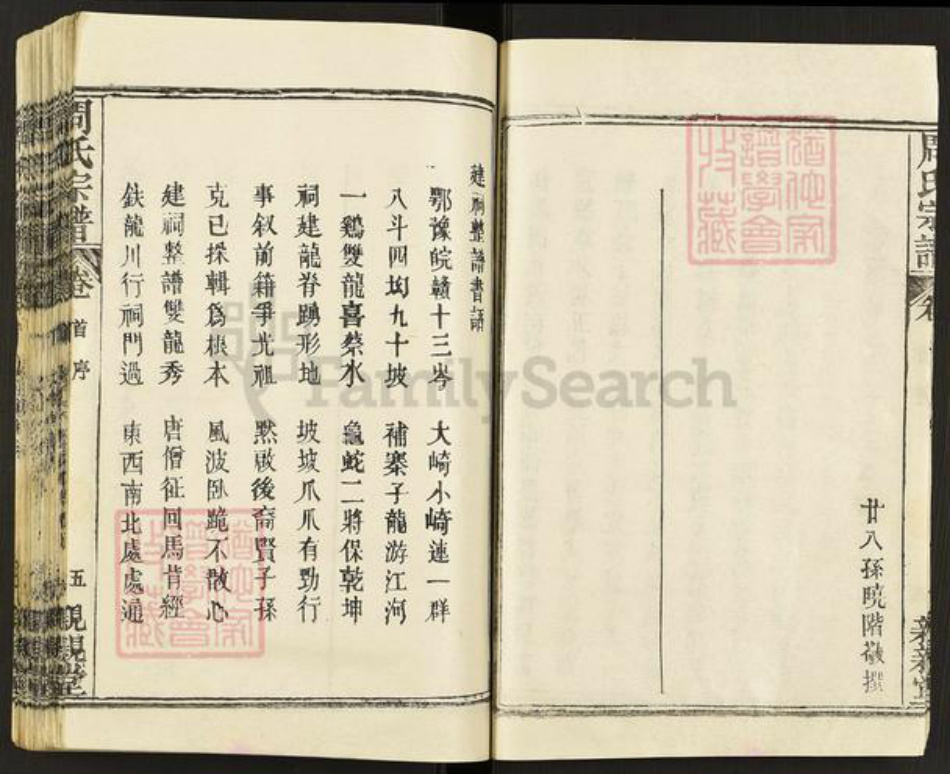 周氏宗譜
廿八孫曉階敬撰
親親堂
建祠整譜書語
鄂豫皖贛十三岑 大崎小崎連一群
八斗四㘭九十坡 補寨子龍游江河
一鷄雙龍喜蔡水 龜蛇二將保乾坤
祠建龍脊踴形地 坡坡爪爪有勁行
事叙前籍爭光祖 黙啟後裔賢子孫
克已採輯爲根本 風波臥跪不散心
建祠整譜雙龍秀 唐僧征回馬背經
鉄龍川行祠門過 東西南北處處通
周氏宗譜
卷首序
五
親親堂
FamilySearch